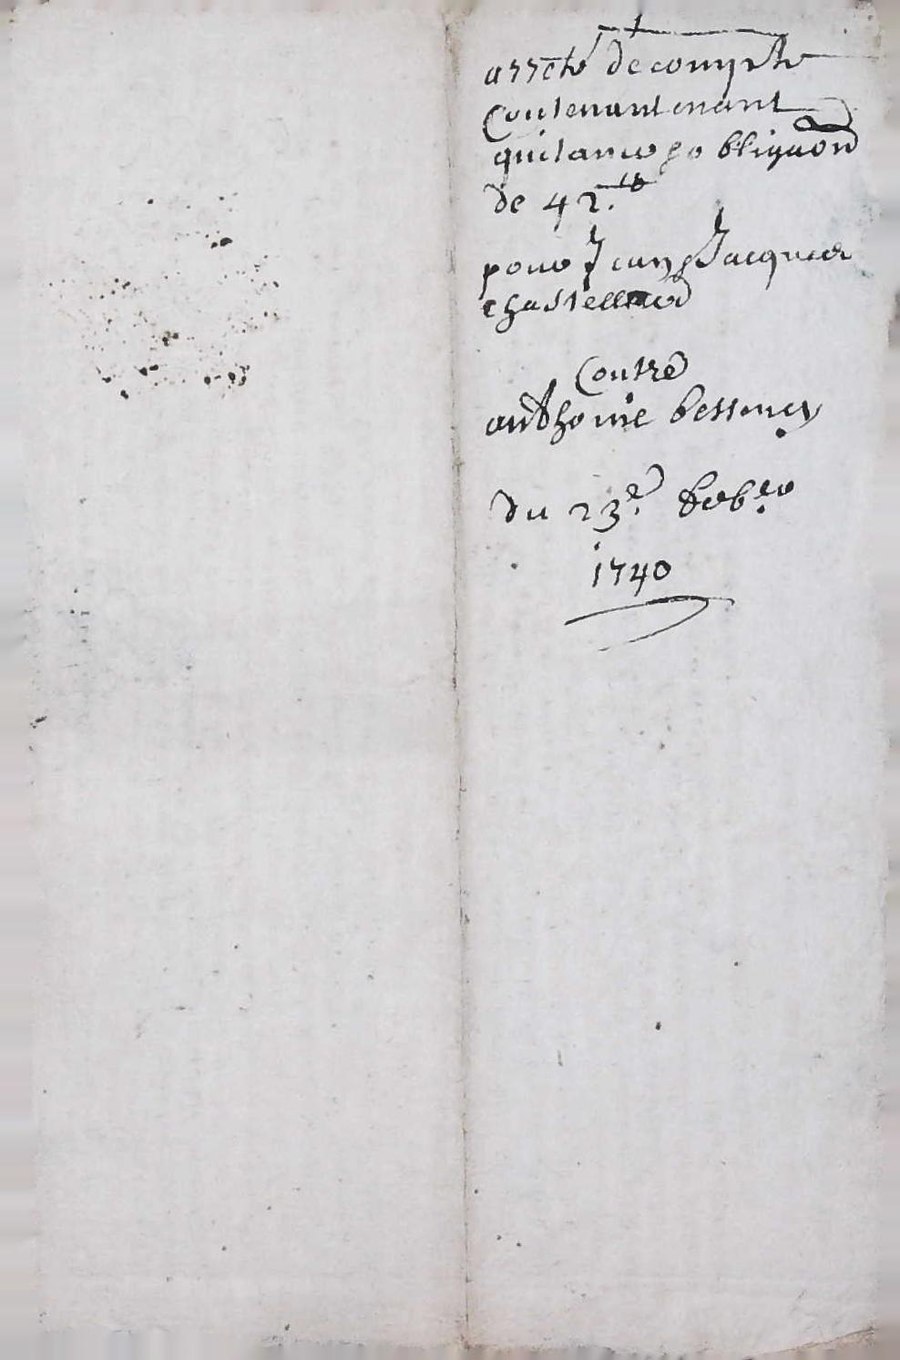 arreté de compte
Contenant
quitance & obligaōn
de 42.tt
pour Jean Jacques
chastell
Contre
anthoine bessoney
du 23e. bre
1740